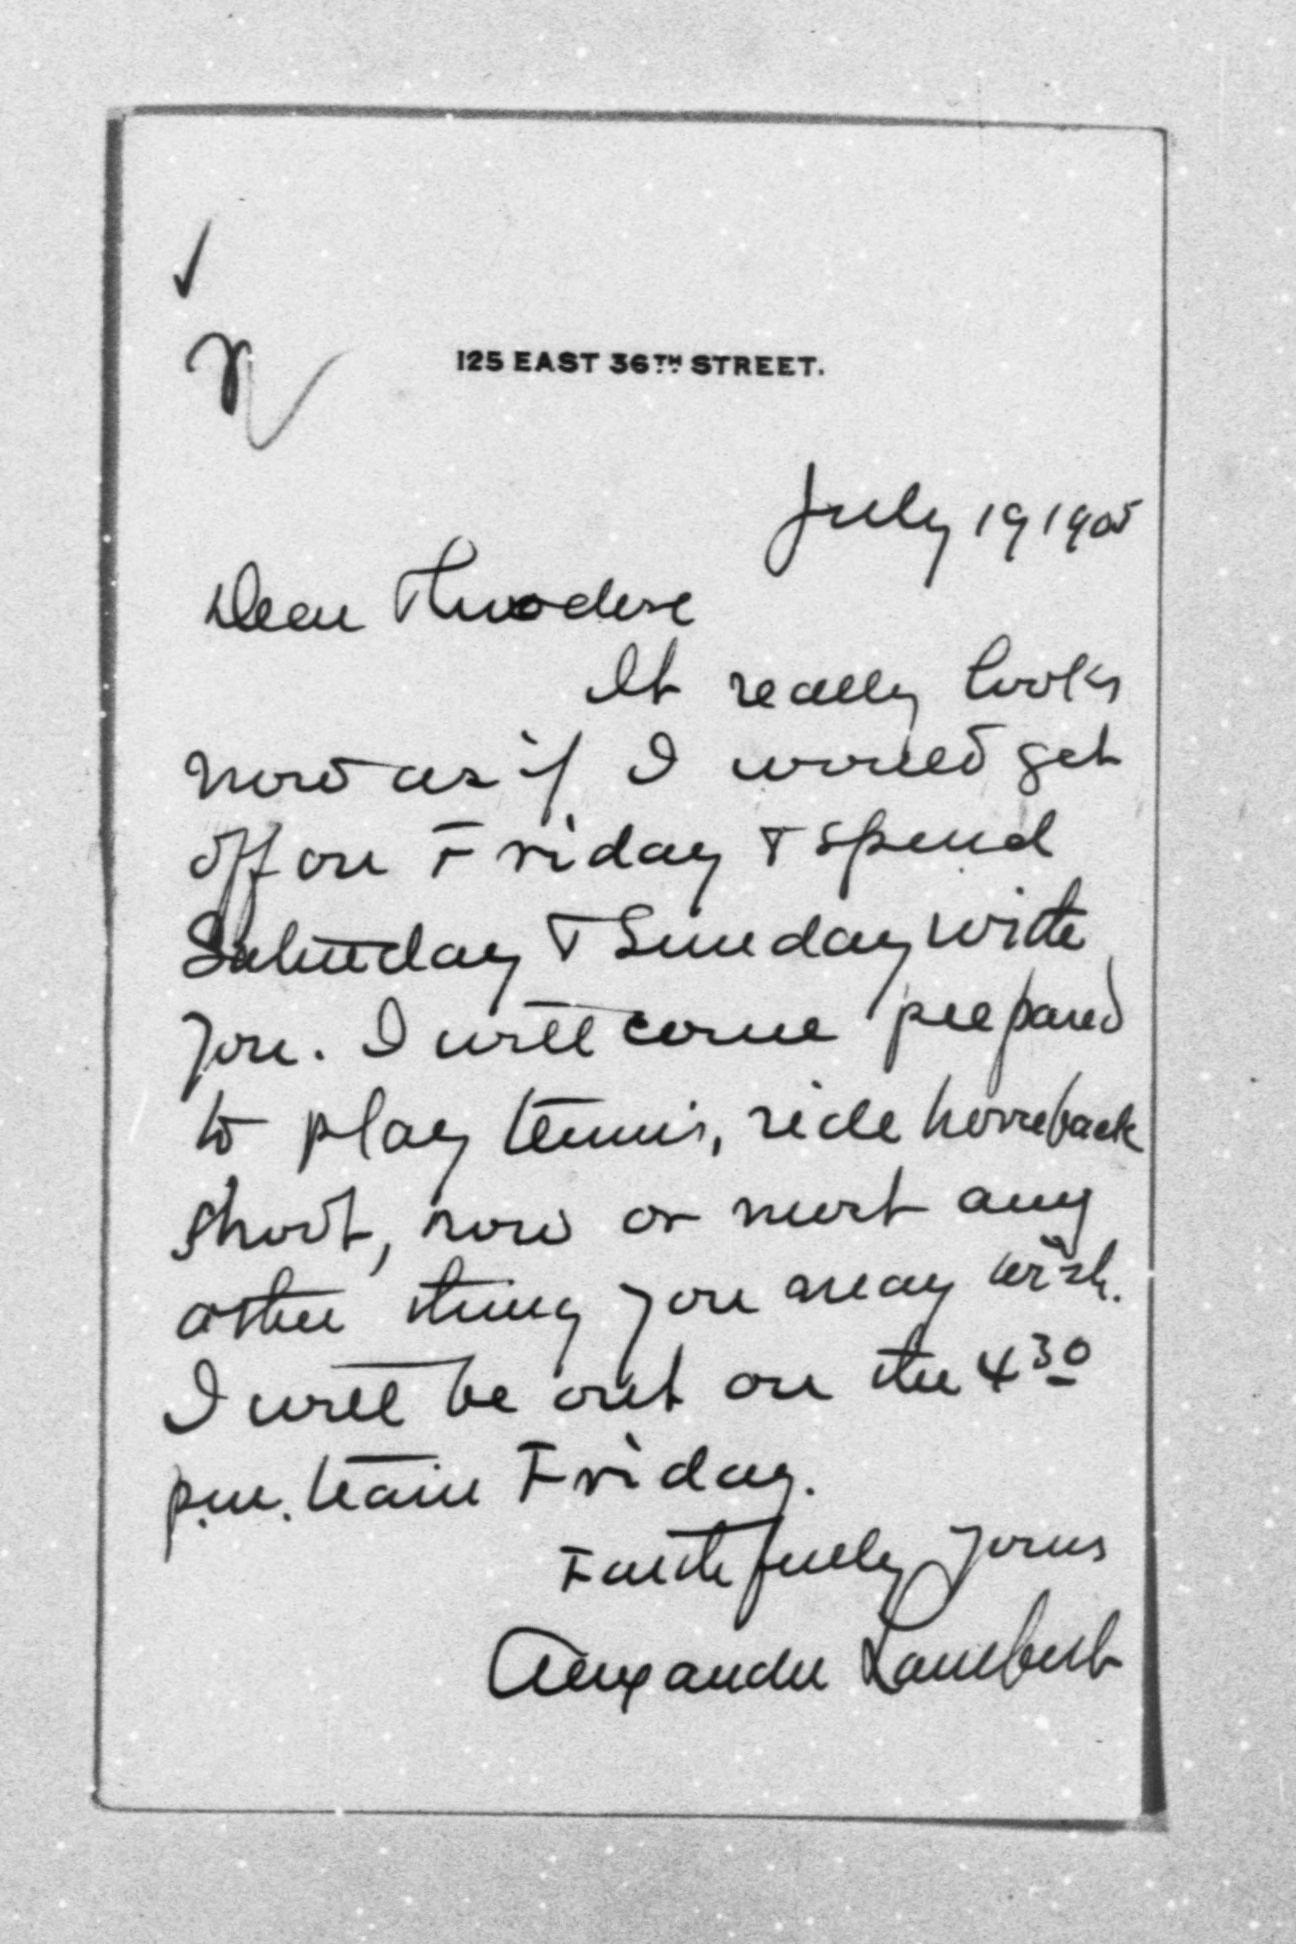 125 EAST 36TH STREET.
July 19 1905
Dear Theodore
It really looks
now as if I would get
off on Friday & spend
Saturday & Sunday with
you. I will come prepared
to play tennis, ride horseback
shoot, row or most any
other thing you may wish.
I will be out on the 4 30
p.m. train Friday.
Faithfully yours
Alexander Lambert